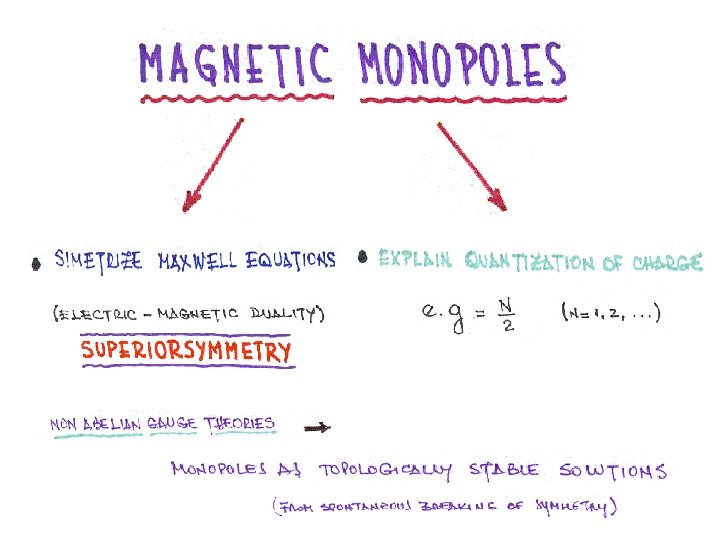 MAGNETIC MONOPOLES
• SIMETRIZE MAXWELL EQUATIONS
(ELECTRIC - MAGNETIC DUALITY)
SUPERIORSYMMETRY
• EXPLAIN QUANTIZATION OF CHARGE
e.g = N/2 (N=1,2,...)
NON ABELIAN GAUGE THEORIES →
MONOPOLES AS TOPOLOGICALLY STABLE SOLUTIONS
(FROM SPONTANEOUS BREAKING OF SYMMETRY)